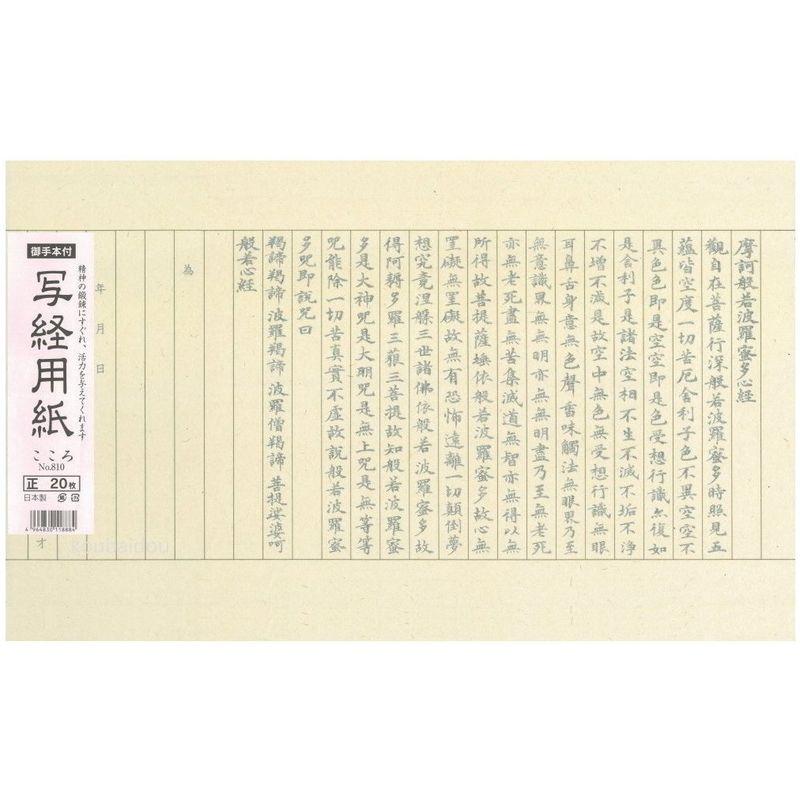 摩訶般若波羅蜜多心経
觀自在菩薩行深般若波羅蜜多時照見五
蘊皆空度一切苦厄舎利子色不異空空不
異色色即是空空即是色受想行識亦復如
是舎利子是諸法空相不生不滅不垢不浄
不増不減是故空中無色無受想行識無眼
耳鼻舌身意無色聲香味觸法無眼界乃至
無意識界無無明亦無無明盡乃至無老死
亦無老死盡無苦集滅道無智亦無得以無
所得故菩提薩埵依般若波羅蜜多故心無
罣礙無罣礙故無有恐怖遠離一切顛倒夢
想究竟涅槃三世諸佛依般若波羅蜜多故
得阿耨多羅三藐三菩提故知般若波羅蜜
多是大神咒是大明咒是無上咒是無等等
咒能除一切苦真實不虚故說般若波羅蜜
多咒即說咒曰
羯諦羯諦波羅羯諦波羅僧羯諦菩提娑婆呵
般若心経
為
年月日
オ
御手本付
精神の鍛錬にすぐれ、活力を与えてくれます
写経用紙
こころ
No.810
正 20枚
日本製
4964830118884
Koubaidou